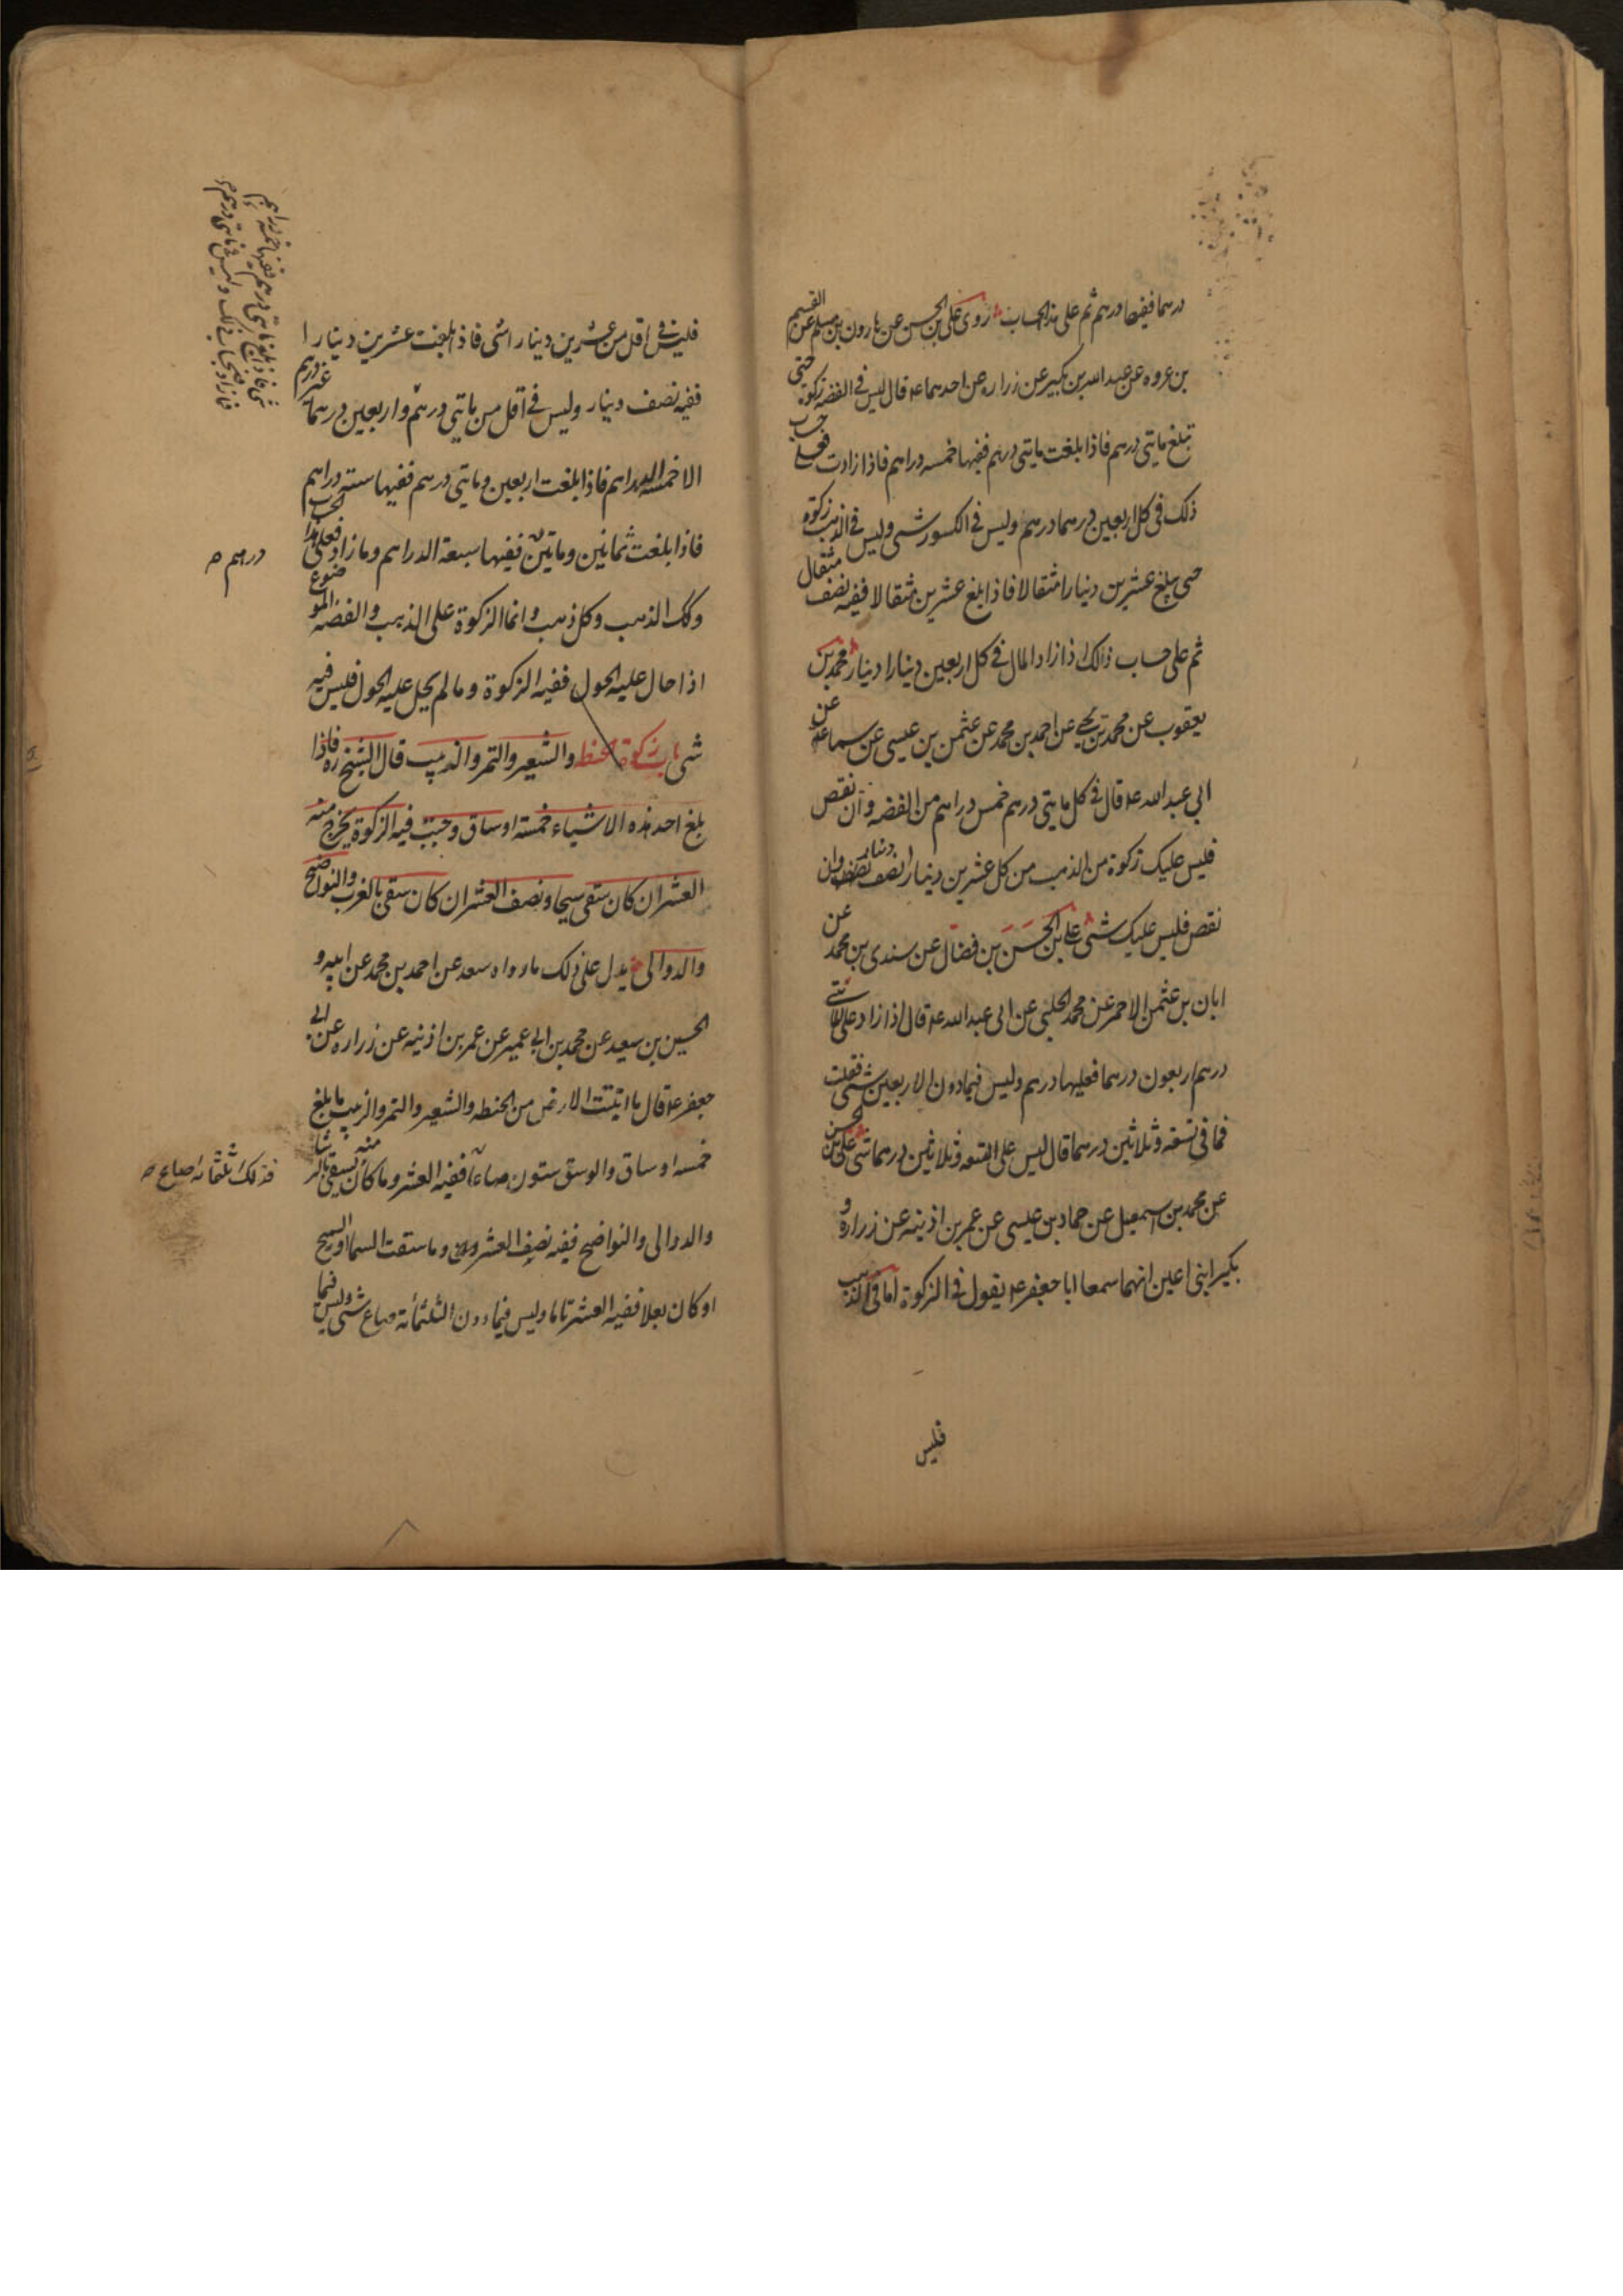 درهما ففيها درهم ثم على هذا الحساب روى على بن الحسن عن هارون بن مسلم عن القسم
بن عروه عن عبد الله بن بكير عن زراره عن احدهما ع قال ليس فى الفضه زكوة حتى
تبلغ مايتى درهم فاذا بلغت مايتى درهم ففيها خمسه دراهم فاذا زادت فعلى حساب
ذلك فى كل اربعين درهما درهم وليس فى الكسور شى وليس فى الذهب زكوة
حتى يبلغ عشرين دينارا مثقالا فاذا بلغ عشرين مثقالا ففيه نصف مثقال
ثم على حساب ذالك اذا زاد المال فى كل اربعين دينارا دينار محمد بن
يعقوب عن محمد بن يحيى عن احمد بن محمد عن عثمن بن عيسى عن سماعه عن
ابى عبد الله ع قال فى كل مايتى درهم خمس دراهم من الفضه وان نقص
فليس عليك زكوة من الذهب من كل عشرين دينارا نصف دينار وان
نقص فليس عليك شى على بن الحسن بن فضال عن سندى بن محمد عن
ابان بن عثمن الاحمر عن محمد الحلبى عن ابى عبد الله ع قال اذا زاد على المائتى
درهم اربعون درهما فعليها درهم وليس فيما دون الاربعين شى فقلت
فما فى تسعه وثلاثين درهما قال ليس على التسعه وثلاثين درهما شى على بن الحسن
عن محمد بن اسمعيل عن حماد بن عيسى عن عمر بن اذينه عن زراره و
بكير ابنى اعين انهما سمعا ابا جعفر ع يقول فى الزكوة اما فى الذهب
فليس
فليس فى اقل من عشرين دينارا شى فاذا بلغت عشرين دينارا
ففيه نصف دينار وليس فى اقل من مايتى درهم واربعين درهما غير درهم
الا خمسة الدراهم فاذا بلغت اربعين ومايتى درهم ففيها ستة دراهم
فاذا بلغت ثمانين ومايتين ففيها سبعة الدراهم وما زاد فعلى هذا الحساب
درهم
وكك الذهب وكل ذهب وانما الزكوة على الذهب والفضه الموضوع
اذا حال عليه الحول ففيه الزكوة وما لم يحل عليه الحول فليس فيه
شى باب زكوة الحنطه والشعير والتمر والزبيب قال الشيخ ره فاذا
بلغ احد هذه الاشياء خمسة اوساق وجبت فيه الزكوة يخرج منه
العشر ان كان سقى سيحا ونصف العشر ان كان سقى بالغرب والنواضح
والدوالى يدل على ذلك ما رواه سعد عن احمد بن محمد عن ابيه و
الحسين بن سعيد عن محمد بن ابى عمير عن عمر بن اذينه عن زراره عن ابى
جعفر ع قال ما انبتت الارض من الحنطه والشعير والتمر والزبيب ما بلغ
خمسه اوساق والوسق ستون صاعا ففيه العشر وما كان منه يسقى بالرشا
فذلك ثلثمائه صاع
والدوالى والنواضح ففيه نصف العشر وما سقت السما او السيح
او كان بعلا ففيه العشر تاما وليس فيما دون الثلثمائة صاع شى وليس فيما